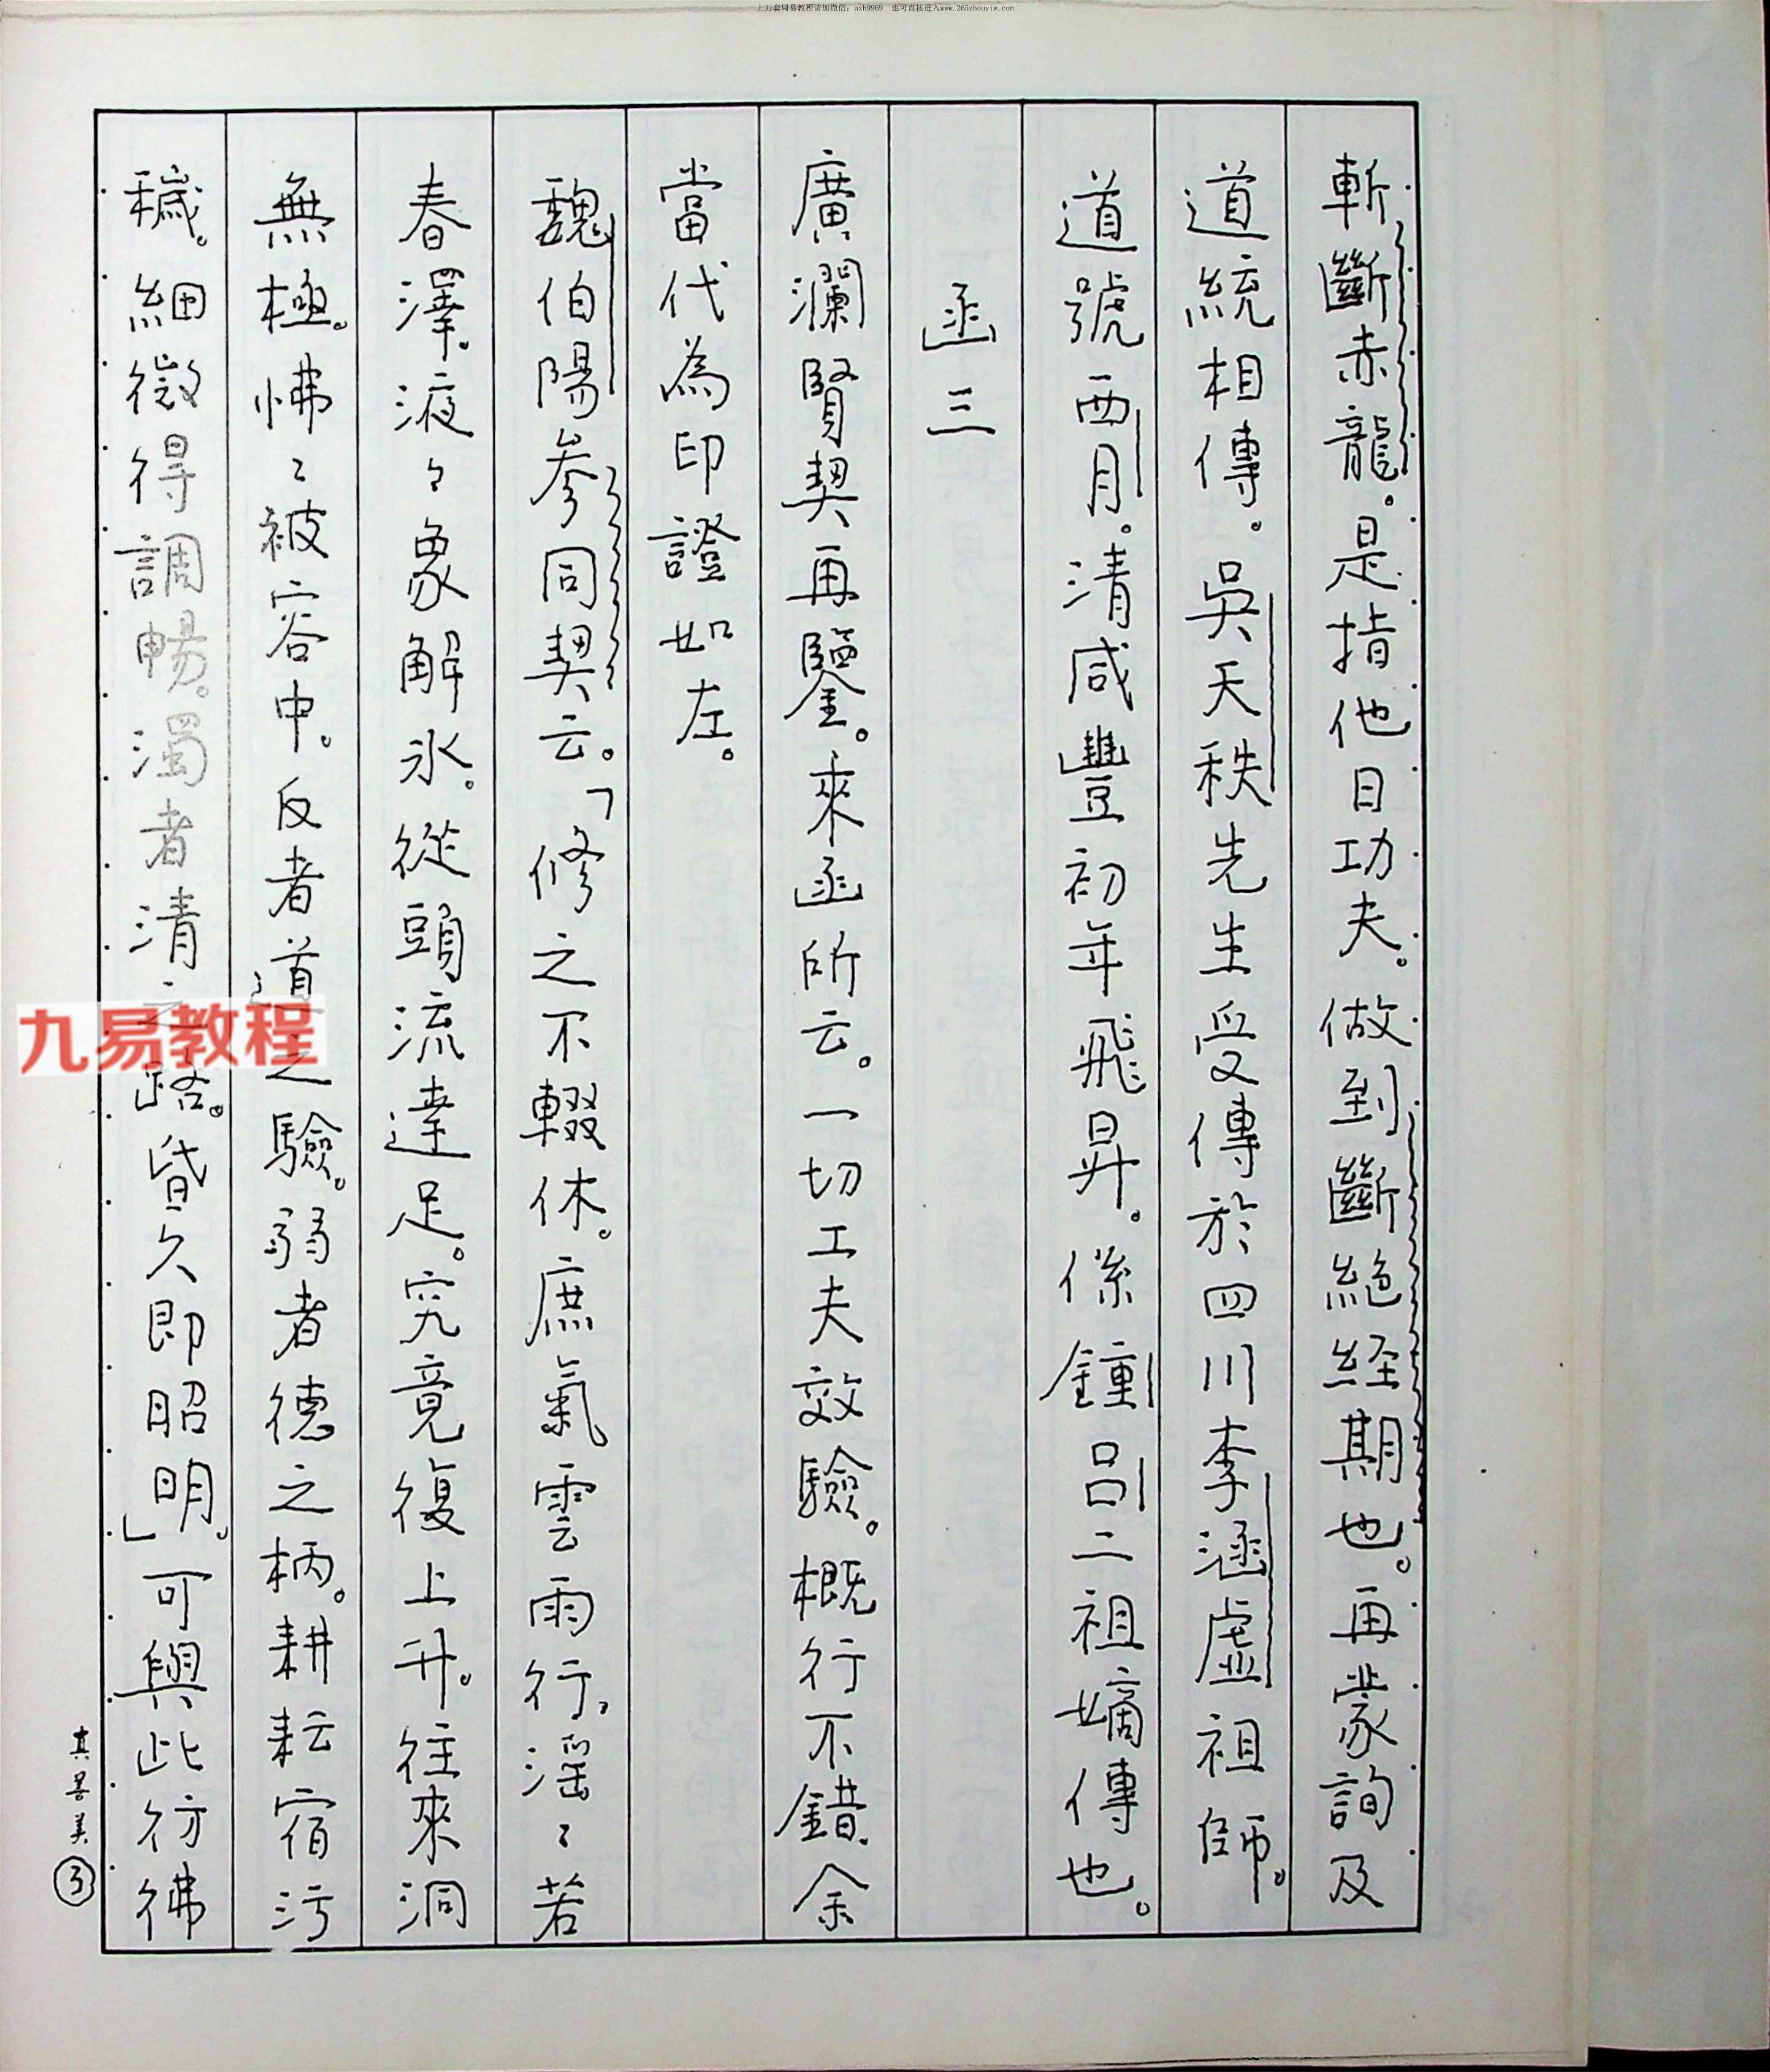 上万套周易教程请加微信：azh9969 也可直接进入www.265zhouyim.com
斬斷赤龍。是指他日功夫。做到斷絕経期也。再蒙詢及
道統相傳。吳天秩先生受傳於四川李涵虛祖師。
道號西月。清咸豐初年飛昇。係鍾呂二祖嫡傳也。
函三
廣瀾賢契再鑒。來函所云。一切工夫效驗。概行不錯。余
當代為印證如左。
魏伯陽參同契云。「修之不輟休。庶氣雲雨行。滛〻若
春澤。液〻象解氷。從頭流達足。究竟復上升。往來洞
無極。怫〻被容中。反者道之驗。弱者德之柄。耕耘宿污
穢。細微得調暢。濁者清之路。昏久即昭明。」可與此彷彿
九易教程
③